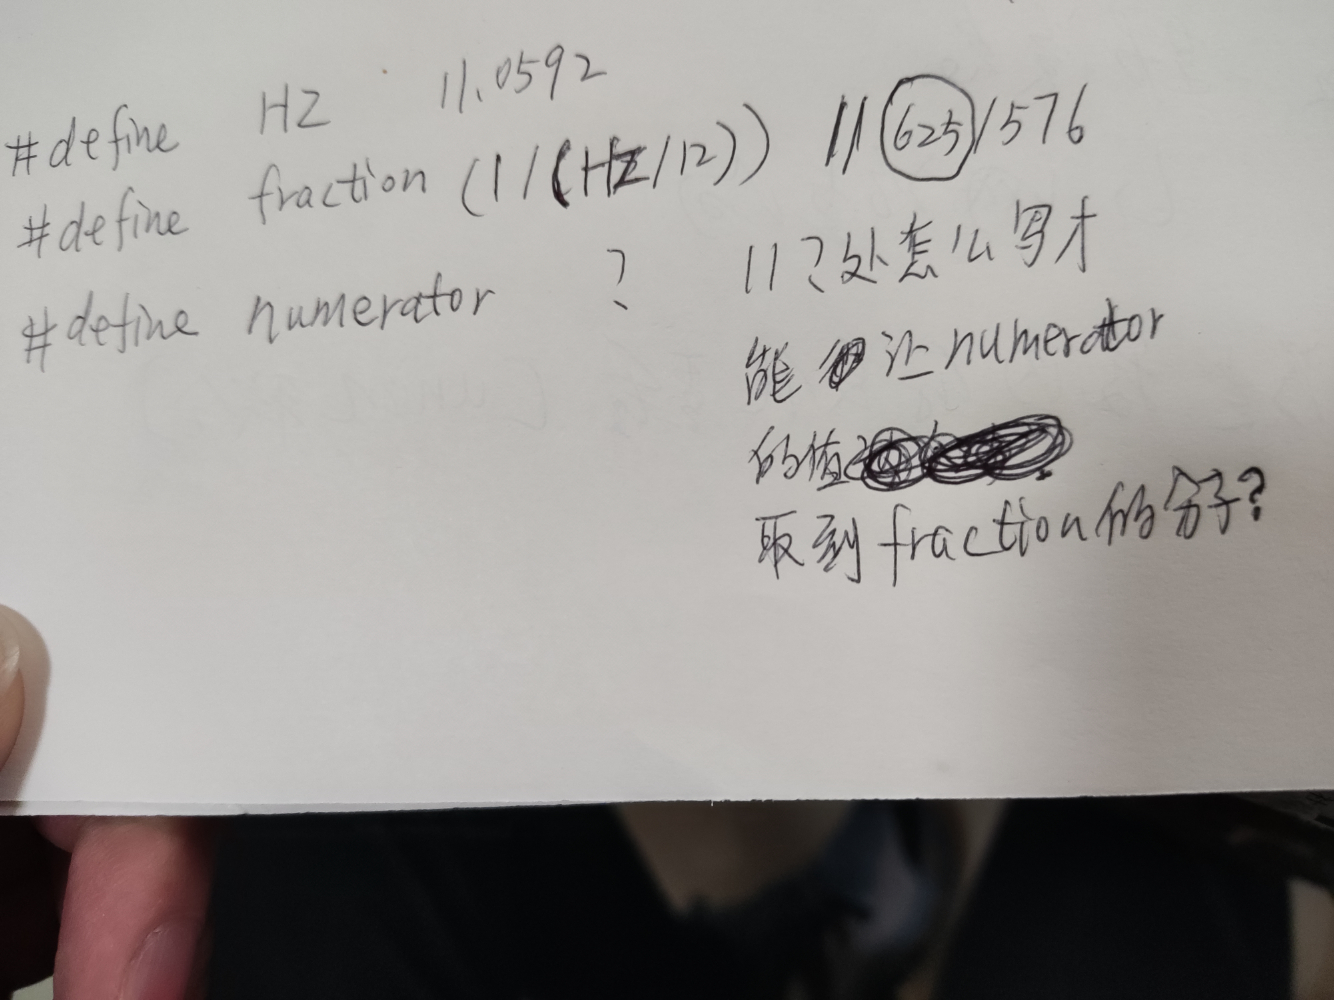 #define HZ 11.0592
#define fraction (1/(HZ/12)) // 625/576
#define numerator ? //?处怎么写才
能让numerator
的值
取到fraction的分子?